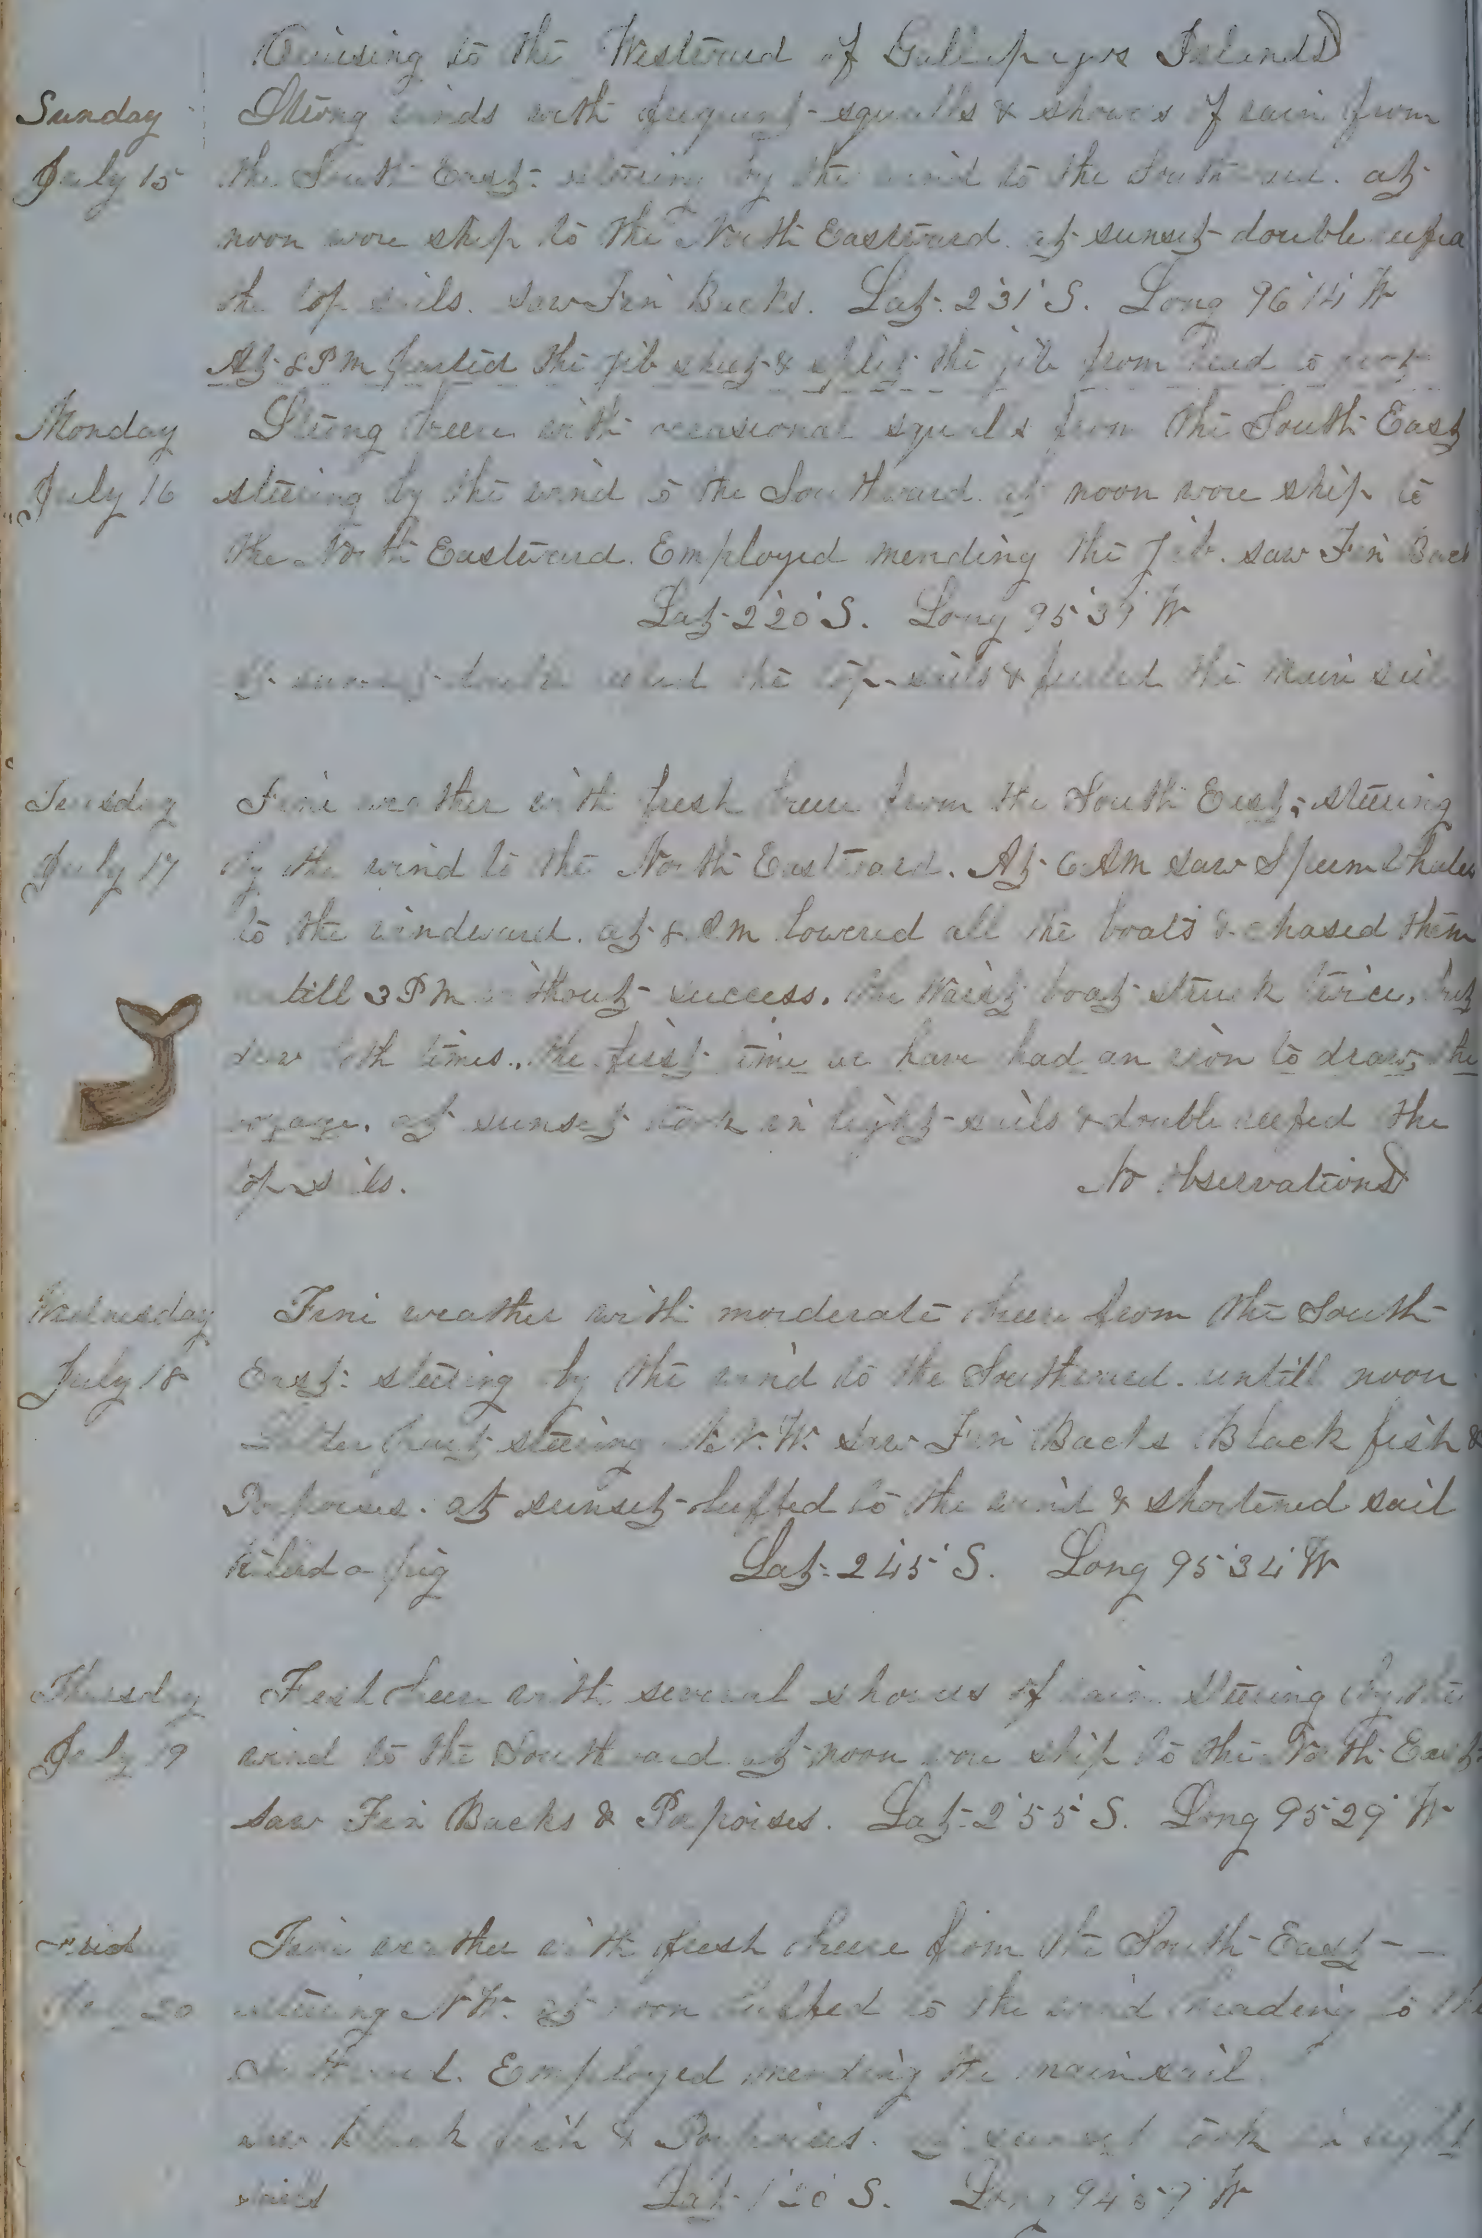 Cruising to the Westward of Gallapagos Islands
Sunday Strong winds with frequent squalls & showers of rain from
July 15 the South East. steering by the wind to the Southward. at
noon wore ship to the North Eastward. at sunset double reefed
the top sails. saw Fin Backs. Lat. 2°31' S. Long 96°14' W
At 8 PM parted the jib sheet & split the jib from head to foot
Monday Strong breeze with occasional squalls from the South East
July 16 steering by the wind to the Southward. at noon wore ship to
the North Eastward. Employed mending the Jib. saw Fin Back
Lat. 2°20' S. Long 95°39' W
at sunset double reefed the top sails & furled the main sail
Tuesday Fine weather with fresh breeze from the South East, steering
July 17 by the wind to the North Eastward. At 6 AM saw Sperm Whales
to the windward. at 8 AM lowered all the boats & chased them
untill 3 PM without success. the Waist boat struck twice, but
drew both times., the first time we have had an iron to draw, the
voyage. at sunset took in light sails & double reefed the
top sails. No Observations
Wednesday Fine weather with morderate breeze from the South
July 18 East. steering by the wind to the Southward. untill noon
Latter part steering N.N.W. saw Fin Backs Black fish &
Porpoises. at sunset luffed to the wind & shortened sail
killed a pig Lat. 2°45' S. Long 95°34' W
Thursday Fresh breeze with several showers of rain. steering by the
July 19 wind to the Southward at noon wore ship to the North East
saw Fin Backs & Porpoises. Lat. 2°55' S. Long 95°29' W
Friday Fine weather with fresh breeze from the South East
July 20 steering NW. at noon luffed to the wind heading to the
Southward. Employed mending the main sail.
saw black fish & Porpoises. at sunset took in light
sails Lat. 1°20' S. Long 94°57' W